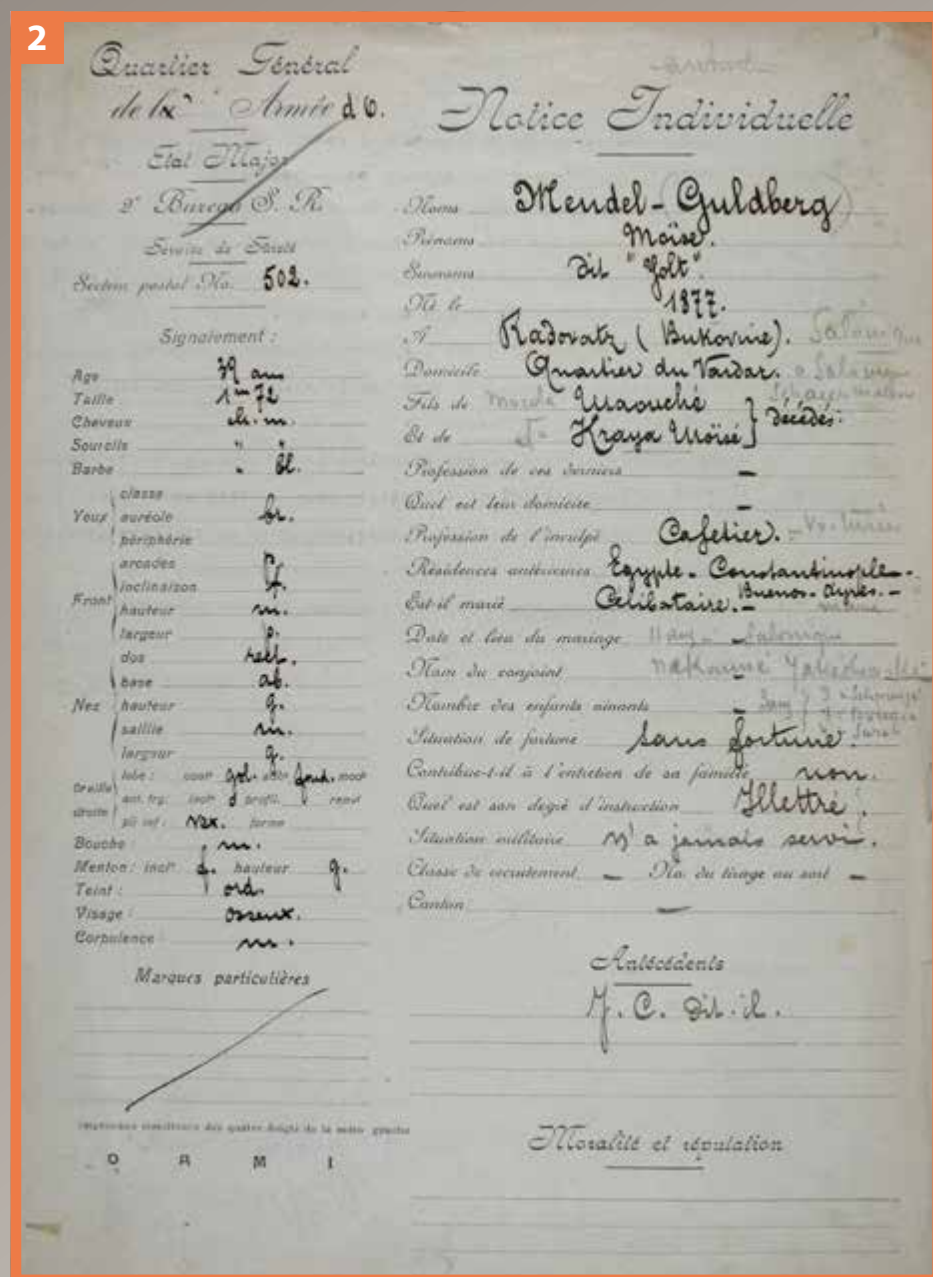 2
Quartier Général
de la Armée d'O.
État Major
2e Bureau S. R.
Service de Sûreté
Secteur postal No. 502.
Signalement :
Age 39 ans
Taille 1m 72
Cheveux ch. m.
Sourcils " "
Barbe " bl.
Yeux
classe
auréole br.
périphérie
Front
arcades p.
inclinaison f.
hauteur m.
largeur p.
Nez
dos rect.
base ab.
hauteur g.
saillie m.
largeur g.
Oreille droite
lobe : contr gol. adhce fond. modé
ant. trg: inclon profil. renvt
pli inf : vex. forme
Bouche : m.
Menton : inclon f. hauteur g.
Teint : ord.
Visage : osseux.
Corpulence m.
Marques particulières
Empreintes simultanées des quatre doigts de la main gauche
O A M I
Notice Individuelle
Noms Mendel - Guldberg
Prénoms Moïse.
Surnoms dit "Golt".
Né le 1877.
A Radovatz ( Bukovine). Salonique
Domicile Quartier du Vardar. a Salonique
Fils de Maouché
Et de Kraya Moïsé } décédés.
Profession de ces derniers —
Quel est leur domicile —
Profession de l'inculpé Cafetier. - Voiturier
Résidences antérieures Egypte - Constantinople -
Buenos-Ayres. -
Est-il marié Célibataire. -
Date et lieu du mariage — Salonique
Nom du conjoint —
Nombre des enfants vivants —
Situation de fortune Sans fortune.
Contribue-t-il à l'entretien de sa famille non.
Quel est son degré d'instruction Illettré.
Situation militaire N'a jamais servi.
Classe de recrutement — No. du tirage au sort —
Canton —
Antécédents
J. C. dit-il.
Moralité et réputation